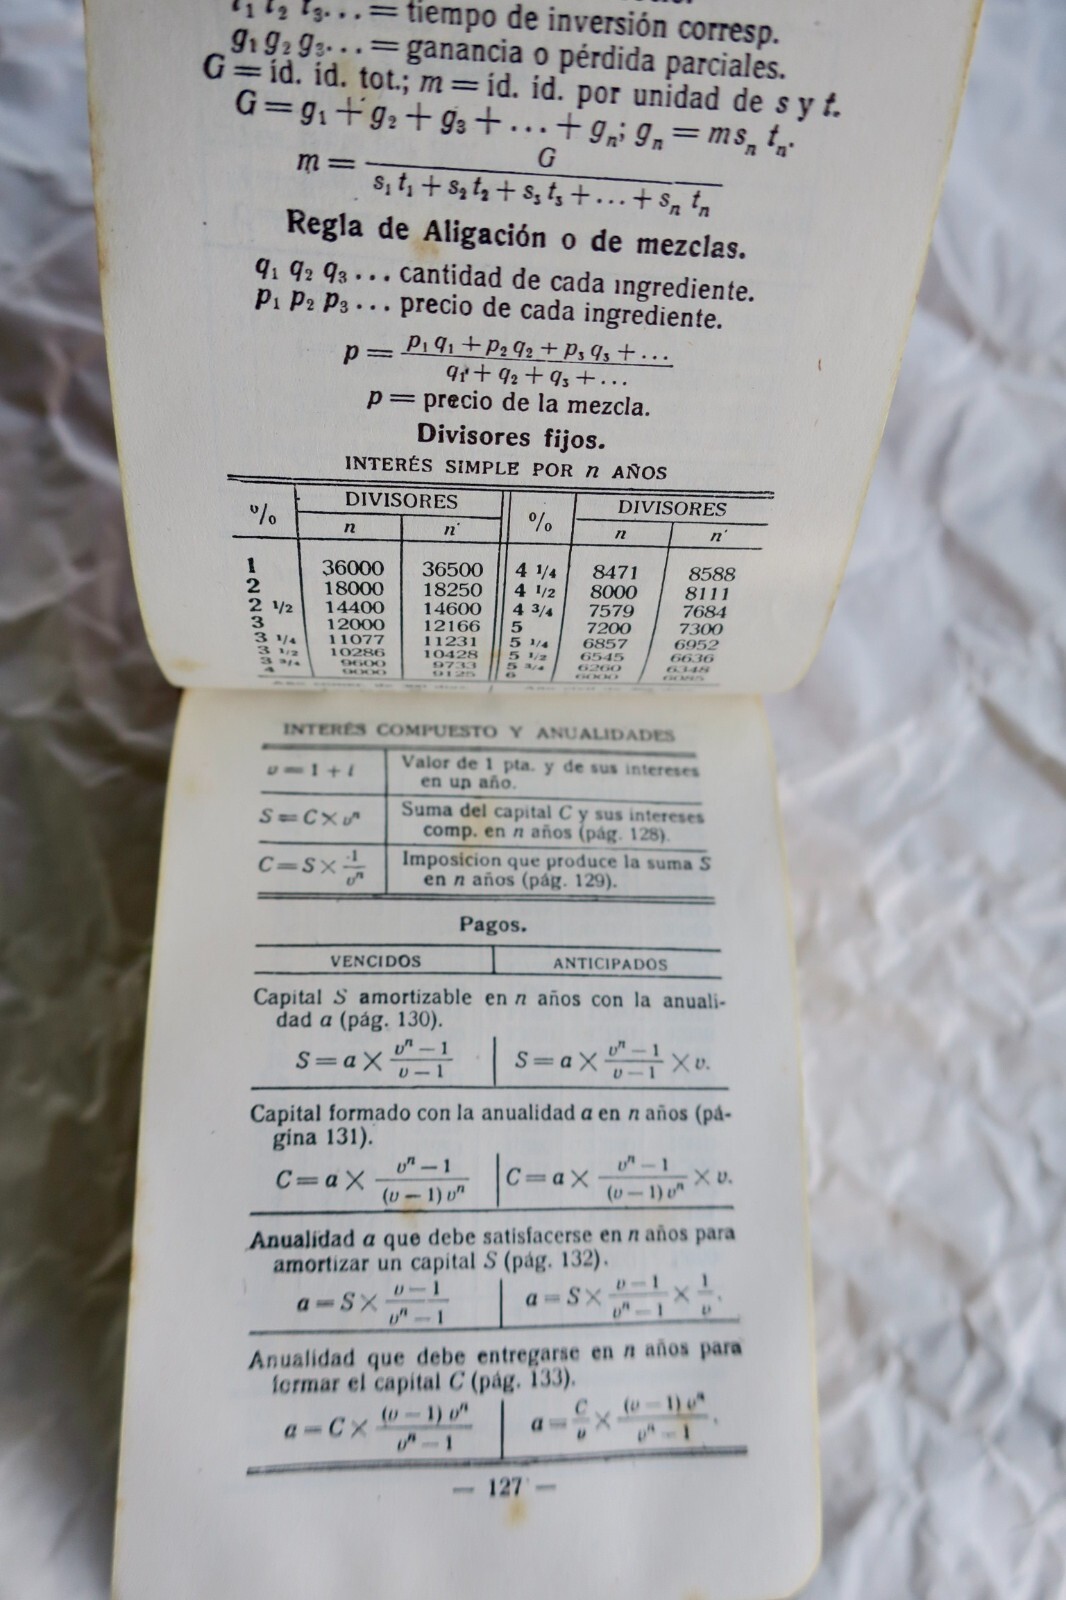 t₁ t₂ t₃... = tiempo de inversión corresp.
g₁ g₂ g₃... = ganancia o pérdida parciales.
G = íd. íd. tot.; m = íd. íd. por unidad de s y t.
G = g₁ + g₂ + g₃ + ... + gₙ; gₙ = msₙ tₙ.
m = G / (s₁ t₁ + s₂ t₂ + s₃ t₃ + ... + sₙ tₙ)
Regla de Aligación o de mezclas.
q₁ q₂ q₃ ... cantidad de cada ingrediente.
p₁ p₂ p₃ ... precio de cada ingrediente.
p = (p₁ q₁ + p₂ q₂ + p₃ q₃ + ...) / (q₁ + q₂ + q₃ + ...)
p = precio de la mezcla.
Divisores fijos.
INTERÉS SIMPLE POR n AÑOS
% DIVISORES % DIVISORES
n n' n n'
1 36000 36500 4 1/4 8471 8588
2 18000 18250 4 1/2 8000 8111
2 1/2 14400 14600 4 3/4 7579 7684
3 12000 12166 5 7200 7300
3 1/4 11077 11231 5 1/4 6857 6952
3 1/2 10286 10428 5 1/2 6545 6636
3 3/4 9600 9733 5 3/4 6260 6348
4 9000 9125 6 6000 6085
INTERÉS COMPUESTO Y ANUALIDADES
v = 1 + i Valor de 1 pta. y de sus intereses
en un año.
S = C × vⁿ Suma del capital C y sus intereses
comp. en n años (pág. 128).
C = S × 1/vⁿ Imposicion que produce la suma S
en n años (pág. 129).
Pagos.
VENCIDOS ANTICIPADOS
Capital S amortizable en n años con la anuali-
dad a (pág. 130).
S = a × (vⁿ − 1)/(v − 1) S = a × (vⁿ − 1)/(v − 1) × v.
Capital formado con la anualidad a en n años (pá-
gina 131).
C = a × (vⁿ − 1)/((v − 1) vⁿ) C = a × (vⁿ − 1)/((v − 1) vⁿ) × v.
Anualidad a que debe satisfacerse en n años para
amortizar un capital S (pág. 132).
a = S × (v − 1)/(vⁿ − 1) a = S × (v − 1)/(vⁿ − 1) × 1/v.
Anualidad que debe entregarse en n años para
formar el capital C (pág. 133).
a = C × ((v − 1) vⁿ)/(vⁿ − 1) a = C/v × ((v − 1) vⁿ)/(vⁿ − 1).
— 127 —